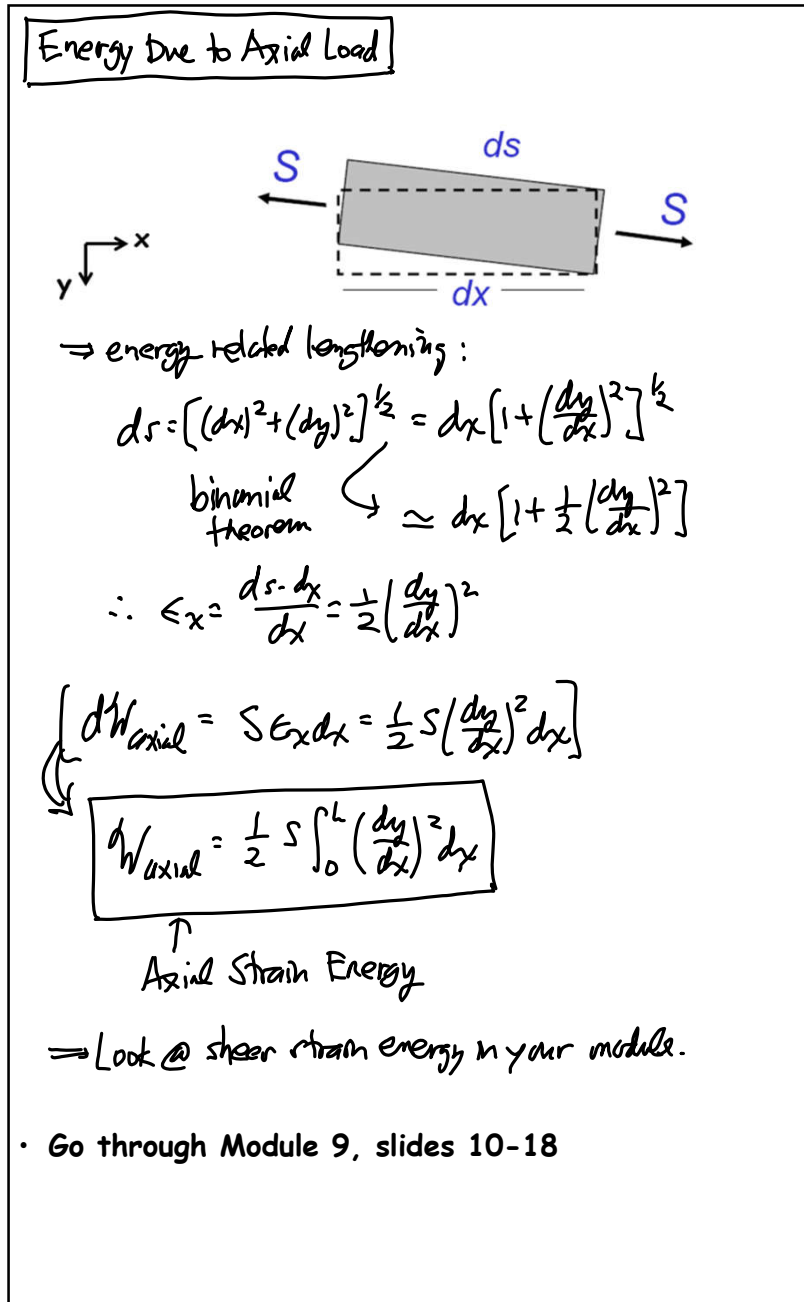 Energy Due to Axial Load
ds
S
S
x
y
dx
⇒ energy related lengthening:
ds = [(dx)² + (dy)²]^½ = dx[1 + (dy/dx)²]^½
binomial
theorem ≃ dx[1 + ½(dy/dx)²]
∴ ϵx = (ds - dx)/dx = ½(dy/dx)²
[dW_axial = Sϵx dx = ½ S(dy/dx)² dx]
W_axial = ½ S ∫₀ᴸ (dy/dx)² dx
↑
Axial Strain Energy
⇒ Look @ sheer strain energy in your module.
· Go through Module 9, slides 10-18